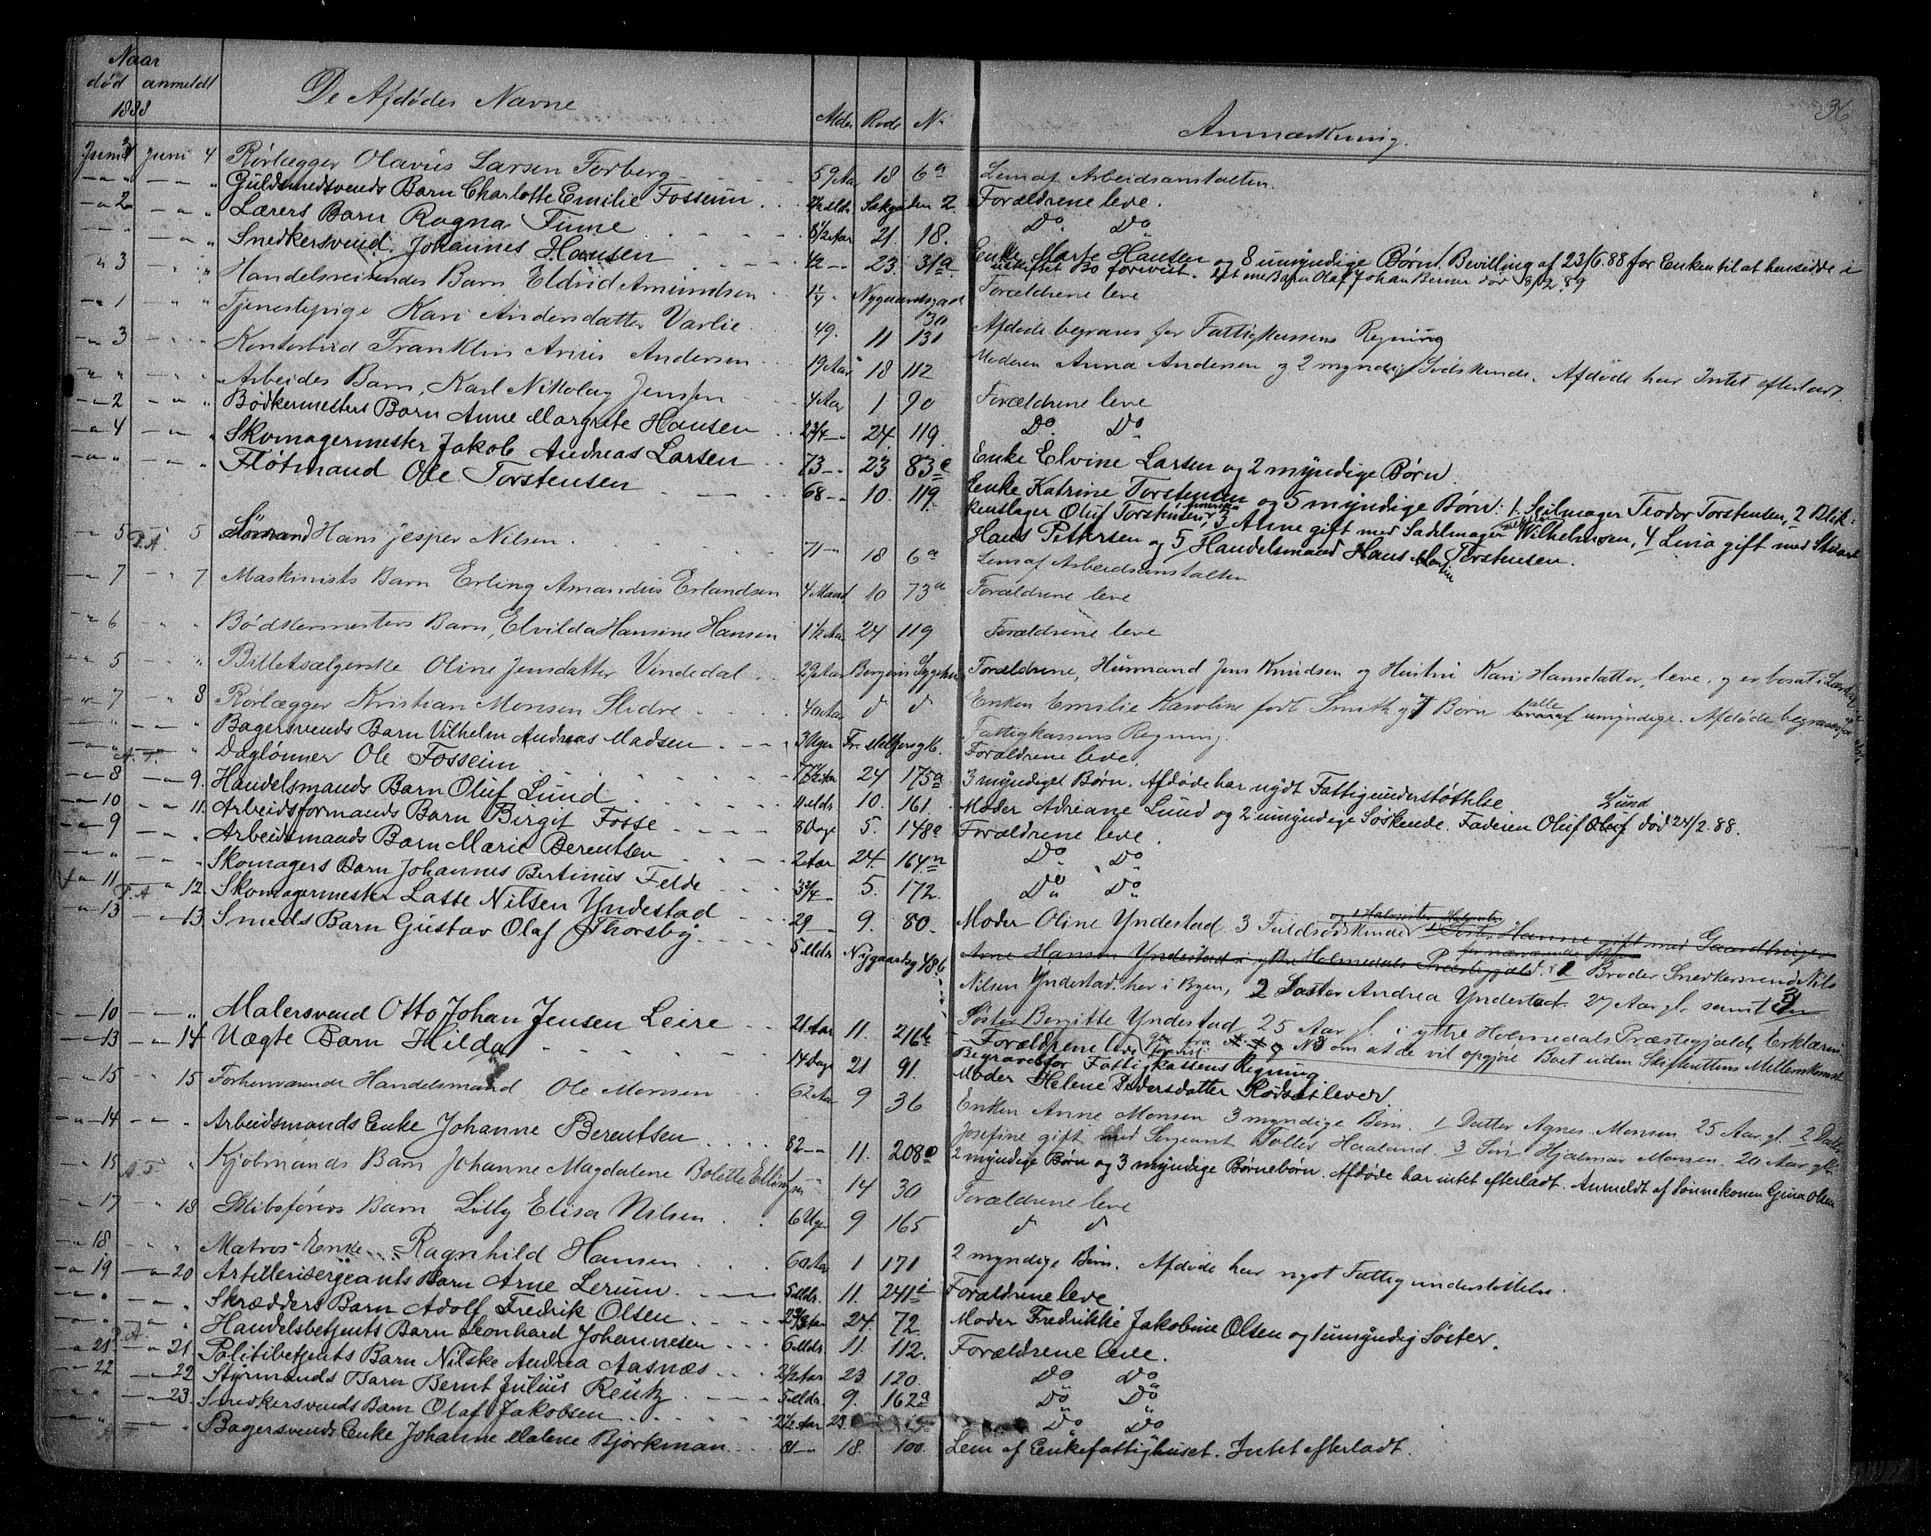 36
Naar
død anmeldt De Afdødes Navne Alder Rode No Anmærkning.
1888
Juni Juni 4 Rørlægger Olavus Larsen Forberg 59 Aar 18 6a Lem af Arbeidsanstalten.
" " " Guldsmedsvends Barn Charlotte Emilie Fosseim Mdr 2. Forældrene leve.
" 2 " " Lærers Barn Ragna Fime 8½ Aar 21. 18. Do Do
" " " Snedkersvend Johannes Hansen 42 23. 31a Enke Marte Hansen og 8 umyndige Børn. Bevilling af 23/6.88 for Enken til at hensidde i
uskiftet Bo forevist. Barn Olaf Johan død 89
" 3 " " Handelsreisendes Barn Eldrid Amundsen 1¼ Nygaardsgad 130 Forældrene leve
" 1 " " Tjenestepige Kari Andersdatter Varlie 49. 11 131 Afdøde begraves for Fattigkassens Regning
" 3 " " Kontorbud Franklin Arius Andersen 19 Aar 18 112 Moderen Anna Andersen og 2 myndig Sødskende. Afdøde har Intet efterladt.
" " " Arbeides Barn, Karl Nikolay Jensen 4 Aar 1 90 Forældrene leve
" 2 " " Bødkermesters Barn Anne Margrete Hansen 2¾ 24. 119. Do Do
" 4 " " Skomagermester Jakob Andreas Larsen 73 23 83e Enke Elvine Larsen og 2 myndige Børn.
" " " Fløtmand Ole Torstensen 68 10. 119. Enke Katrine Torstensen og 5 myndige Børn: 1. Seilmager Teodor Torstensen, 2 Blik-
kenslager Oluf Torstensen, Amerika 3 Anne gift med Sadelmager Wilhelmsen, 4 Lina gift med
Hans Pettersen og 5 Handelsmand Hans Martin Torstensen.
" 5 F.A. 5 Sømand Hans Jesper Nilsen 71 18 6a Lem af Arbeidsanstalten
" 7 " 7 Maskinists Barn Erling Amandus Erlandsen 4 Maand 10 73a Forældrene leve
" 6 " " Bødkermesters Barn, Elvilda Hansine Hansen 1½ Aar 24 119 Forældrene leve
" 5 " " Billetsælgerske Oline Jensdatter Vindedal 29 Aar Bergens Sygehus Forældrene, Husmand Jens Knudsen og Hustru Kari Hansdatter, leve, og er bosat i
" 7 " 8 Rørlægger Kristian Monsen Slidre 40 Aar d d Enken Emilie Karoline født Smith og 7 Børn alle umyndige. Afdøde begraves for
Fattigkassens Regning.
" " " Bagersvends Barn Vilhelm Andreas Madsen 3 Uger Fr. Forældrene leve.
" A.F. " Daglønner Ole Fosseim 77½ Aar 24 175a 3 myndiget Børn. Afdøde har nydt Fattigunderstøttelse.
" 8 " 9. Handelsmands Barn Oluf Lund 4 Mdr. 10. 161. Moder Adriane Lund og 2 umyndige Søskende. Faderen Oluf Lund død 24/2.88.
" 10 " 11. Arbeidsformands Barn Birgit Fosse 8 Dage 5. 148e Forældrene leve.
" 9 " " Arbeidsmands Barn Marie Berentsen 2 Aar 24. 164n Do Do
" " " Skomagers Barn Johannes Bertinius Felde 3¾ 5. 172. Do Do
" 11 F.A " 12. Skomagermester Lasse Nilsen Yndestad 29 9. 80. Moder Oline Yndestad 3 Fuldsødskende
Søster Hanne gift med Gaardbruger
Arne Hansen Yndestad i ytre Holmedals Præstegjeld. 1 Broder Snedkersvend Nils
Nilsen Yndestad her i Byen, 2 Søster Andrea Yndestad 27 Aar gl. samt 3
Søster Bergitte Yndestad 25 Aar gl. i ytre Holmedals Præstegjeld. Erklæring
fra No 3 om at de vil opgjøre Boet uden Skifterettens Mellemkomst
" 13 " 13. Smeds Barn Gustav Olaf Thorsby 5 Mdr Nygaardsg 48b
" 10 " " Malersvend Otto Johan Jensen Leire 21 Aar 11. 216b Forældrene leve
Begraves for Fattigkassens Regning
" 13 " 14 Uægte Barn Hilda 14 Dage 21 91 Moder Helene Pedersdatter Rødset lever.
" 15 " 15 Forhenværende Handelsmand Ole Monsen 62 Aar 9 36 Enken Anne Monsen 3 myndige Børn. 1 Datter Agnes Monsen 25 Aar gl. 2 Datter
Josefine gift med Sergeant Haaland 3 Søn Hjalmar Monsen. 20 Aar gl.
" 14 " " Arbeidsmands Enke Johanne Berentsen 82 11. 208e 2 myndige Børn og 3 myndige Børnebørn. Afdøde har intet efterladt. Anmeldt af Sønnekonen Gina Olsen
" 15 A.F. " Kjøbmands Barn Johanne Magdalene Bolette Ellingsen 14 30 Forældrene leve
" 17 " 18 Skibsførers Barn Lilly Elisa Nilsen 6 Uger 9 165 d d
" 18 " " Matros-Enke Ragnhild Hansen 60 Aar 1 171 2 myndige Børn. Afdøde har nydt Fattigunderstøttelse.
" 19 " 20 Artillerisergeants Barn Arne Lerum 5 Mdr. 11. 241i Forældrene leve
" " " Skrædders Barn Adolf Fredrik Olsen 2¾ Aar 24. 72. Moder Fredrikke Jakobine Olsen og 1 umyndig Søster.
" " " Handelsbetjents Barn Leonhard Johannesen 6 Mdr. 11. 112. Forældrene leve.
" 21 F.A. " 21 Politibetjents Barn Nilske Andrea Aasnæs 2½ Aar 23. 120. Do Do
" 22 " 22 Styrmands Barn Bernt Julius Reutz 5 Mdr. 9. 162a Do Do
" " 23. Snedkersvends Barn Olaf Jakobsen 2½ Aar 23. Do Do
" " " Bagersvends Enke Johanne Malene Bjørkman 81 18. 100. Lem af Enkefattighuset. Intet efterladt.